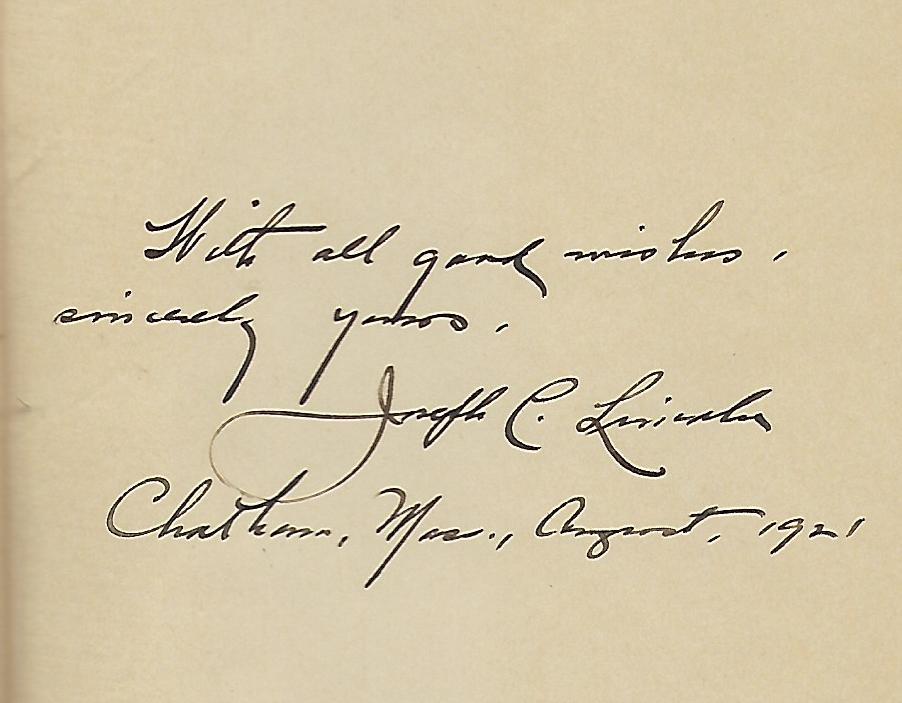 With all good wishes,
sincerely yours,
Joseph C. Lincoln
Chatham, Mass., August, 1921